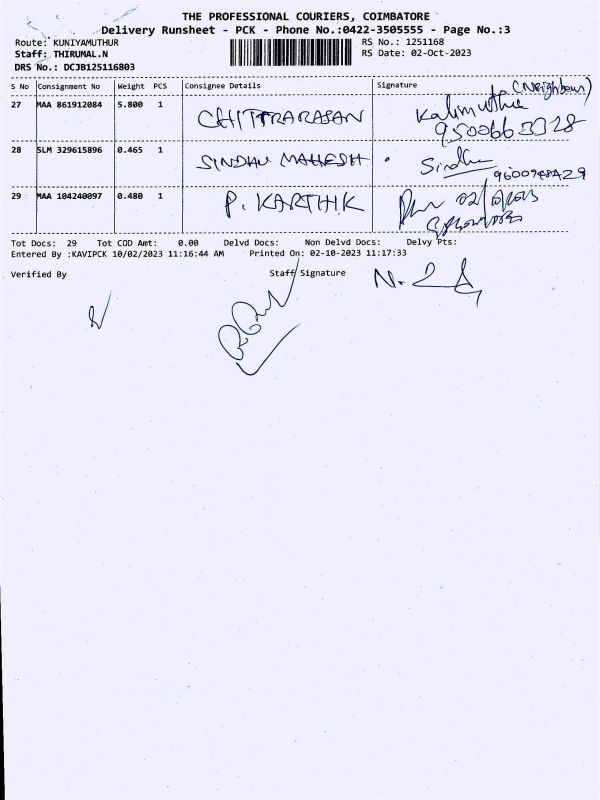 THE PROFESSIONAL COURIERS, COIMBATORE
Delivery Runsheet - PCK - Phone No.:0422-3505555 - Page No.:3
Route: KUNIYAMUTHUR
RS No.: 1251168
Staff: THIRUMAL.N
RS Date: 02-Oct-2023
DRS No.: DCJB125116803
S No Consignment No Weight PCS Consignee Details Signature
(Neighbour)
27 MAA 861912084 5.800 1 CHITTRARASAN Kalimuthu
28 SLM 329615896 0.465 1 SINDHU MAHESH Sindhu
29 MAA 104240097 0.480 1 P. KARTHIK
Tot Docs: 29 Tot COD Amt: 0.00 Delvd Docs: Non Delvd Docs: Delvy Pts:
Entered By :KAVIPCK 10/02/2023 11:16:44 AM Printed On: 02-10-2023 11:17:33
Verified By Staff Signature